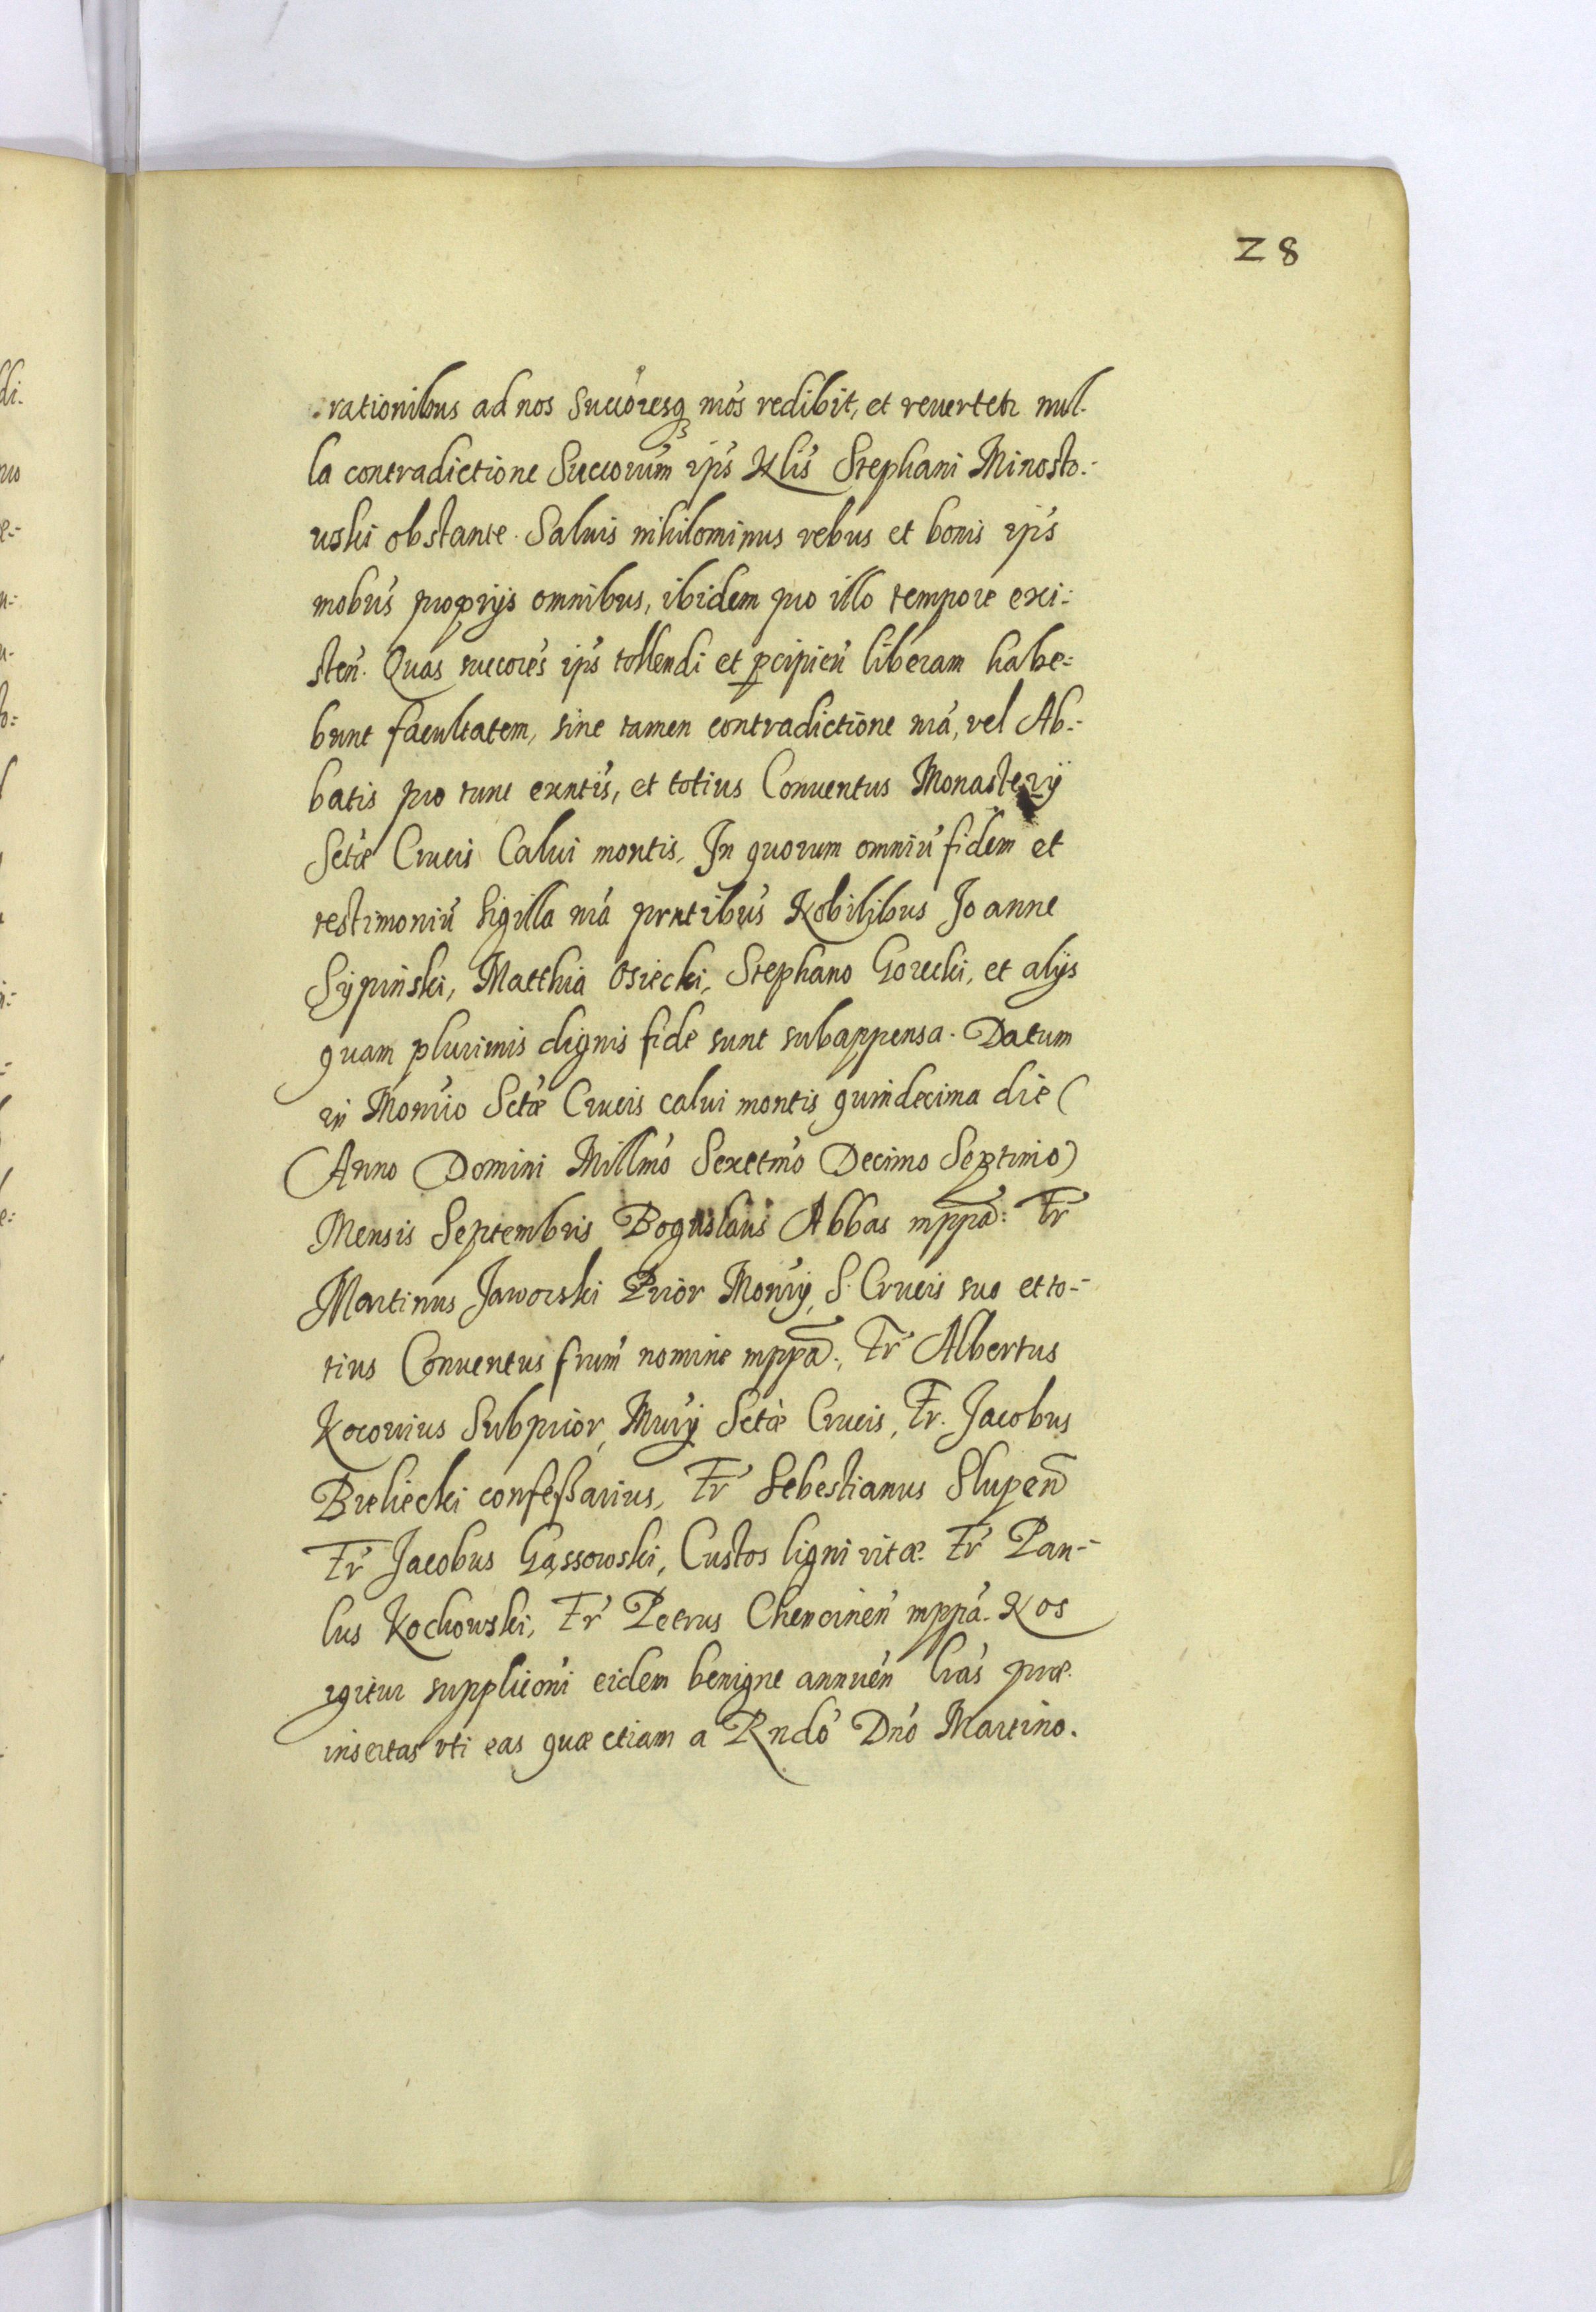 28
rationibus ad nos Succóresq₃ nrós redibit, et reuertetr nul-
la contradictione Succorum̃ iṕs Nlis̃ Stephani Minosto=
uski obstante. Saluis nihilominus rebus et bonis iṕs
mobús proprijs omnibus, ibidem pro illo tempore exi=
steń. Quas succorés iṕs tollendi et ꝑcipień liberam habe=
bunt facultatem, sine tamen contradictione nrá, vel Ab=
batis pro tunc exntiś, et totius Conuentus Monasterÿ
Sctæ Crucis Calui montis, In quorum omniú fidem et
testimoniú sigilla nrá prntibús Nobilibus Joanne
Sÿpiński, Matthia Osiecki, Stephano Gorecki, et alijs
quam plurimis dignis fide sunt subappensa. Datum
in Monrío Sctæ Crucis calui montis quindecima die (
(Anno Domini Millmó Sexctmó Decimo Septimo)
Mensis Septembris Boguslaus Abbas mppã: Fŕ
Martinus Jaworski Prior Monrÿ, S. Crucis suo et to=
tius Conuentus frum̃ nomine mppã., Fŕ Albertus
Kocouius Subprior, Mnrÿ Sctæ Crucis, Fr. Jacobus
Bieliecki confeßarius, Fŕ Sebestianus Slupeñ
Fŕ Jacobus Gąssowski, Custos ligni vitæ. Fŕ Pau=
lus Kochowski, Fŕ Petrus Chencineń mppá. Nos
igitur supplicońi eidem benigne annuéń lrás præ
insertas vti eas quæ etiam a Rndó Dnó Martino.